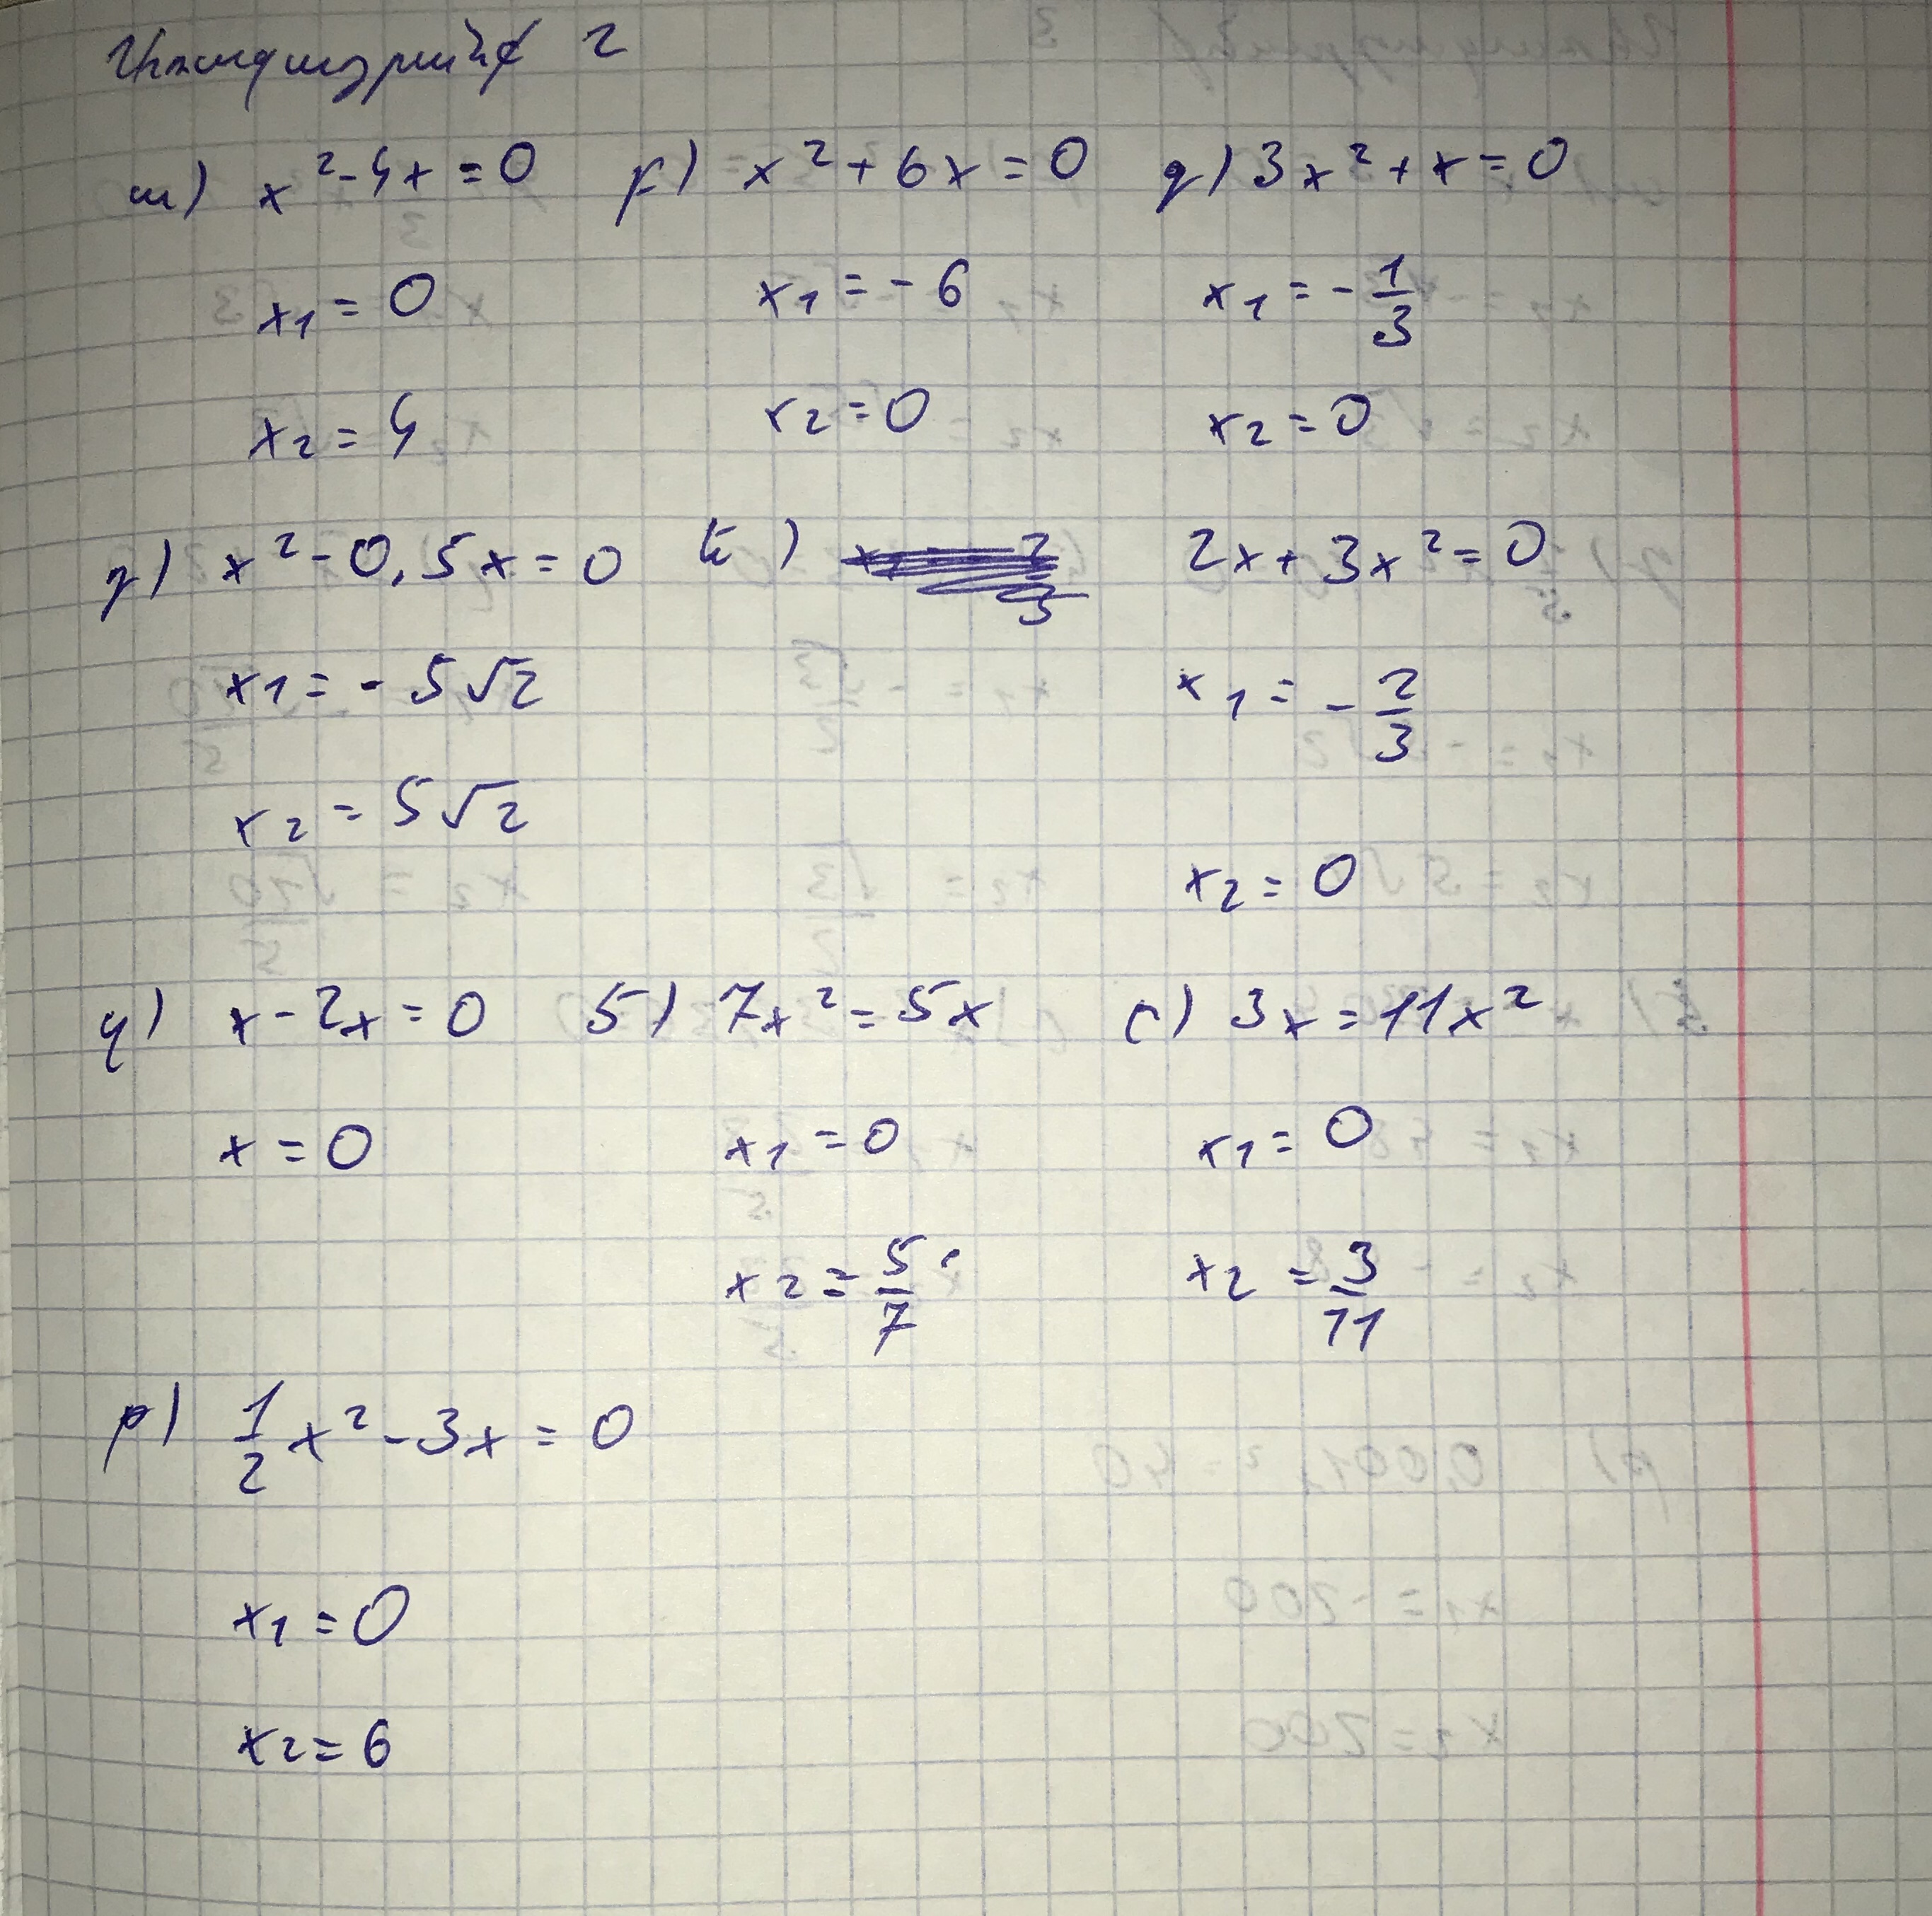 2
ա) x² - 4x = 0 բ) x² + 6x = 0 գ) 3x² + x = 0
x₁ = 0 x₁ = - 6 x₁ = - 1/3
x₂ = 4 x₂ = 0 x₂ = 0
դ) x² - 0,5x = 0 ե) 2x + 3x² = 0
x₁ = - 5√2 x₁ = - 2/3
x₂ = 5√2
x₂ = 0
զ) x - 2x = 0 է) 7x² = 5x ը) 3x = 11x²
x = 0 x₁ = 0 x₁ = 0
x₂ = 5/7 x₂ = 3/11
թ) 1/2 x² - 3x = 0
x₁ = 0
x₂ = 6